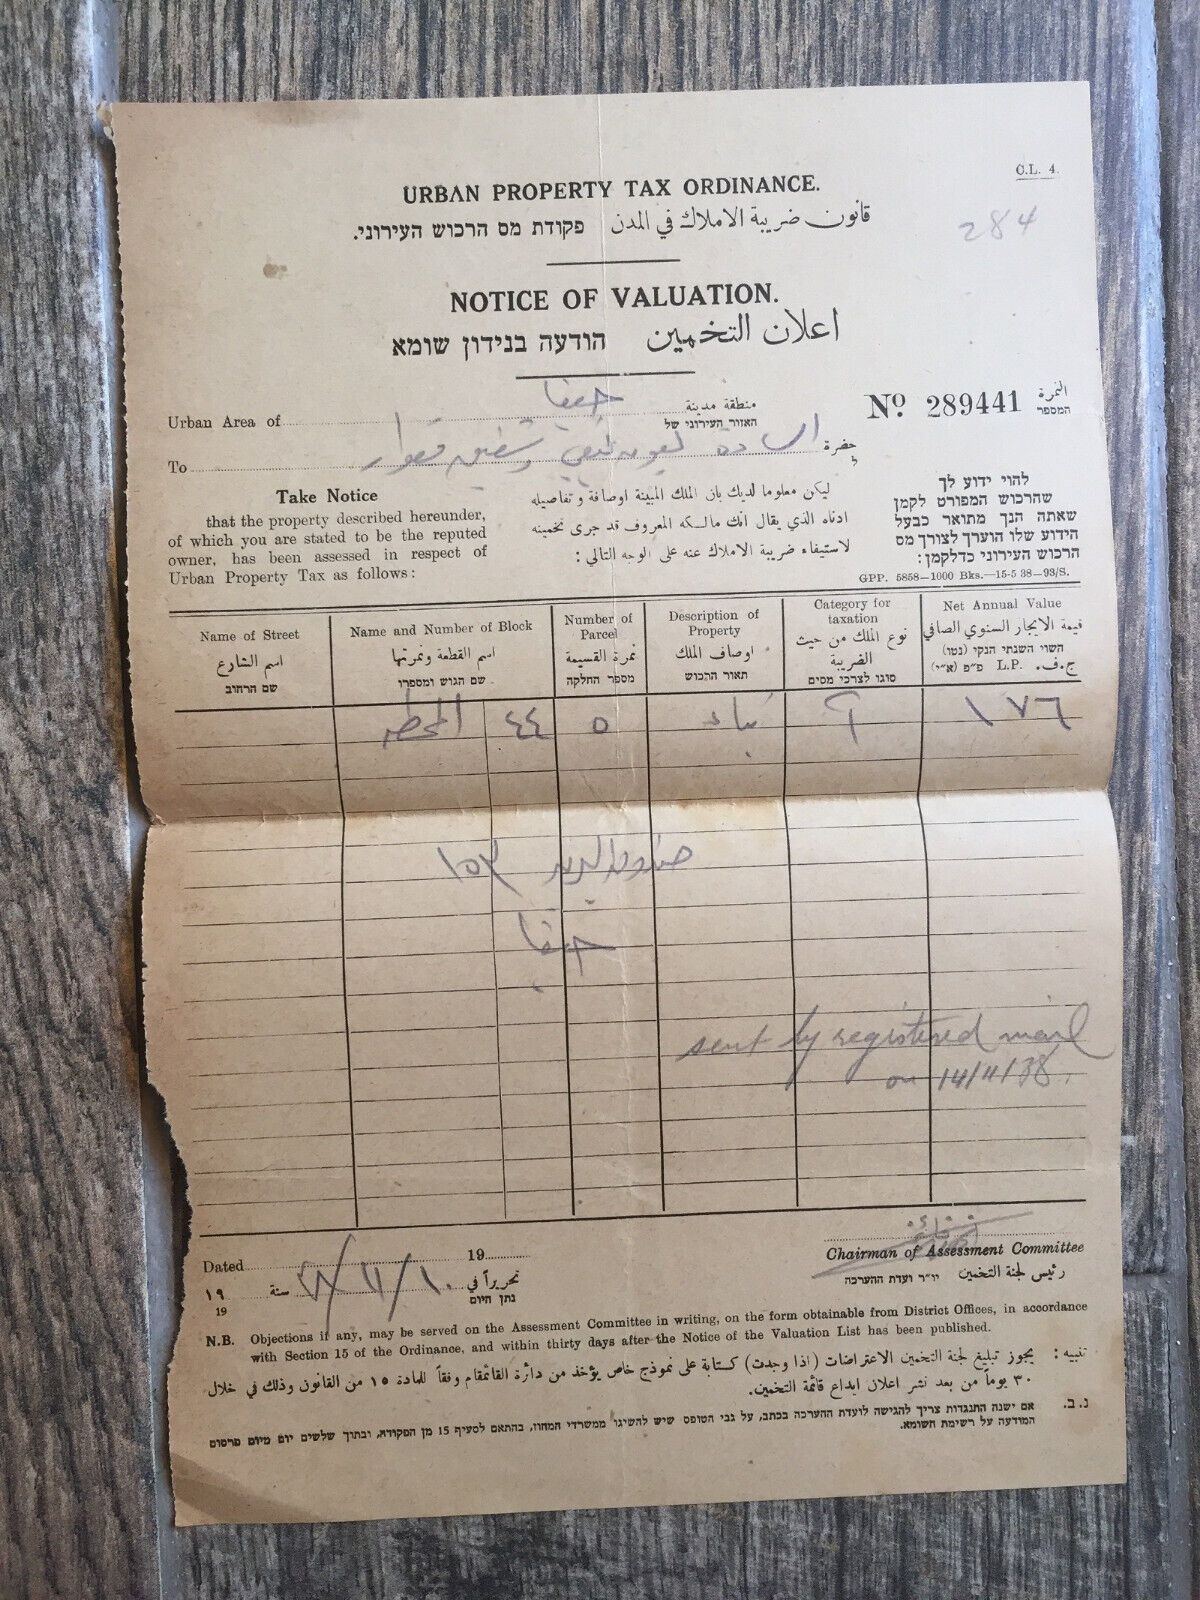 C.L. 4.
URBAN PROPERTY TAX ORDINANCE.
قانون ضريبة الاملاك في المدن פקודת מס הרכוש העירוני.
284
NOTICE OF VALUATION.
اعلان التخمين הודעה בנידון שומא
Urban Area of حيفا منطقة مدينة
האזור העירוני של
No. 289441 النمرة
המספר
To السادة وشفيق قعوار حضرة
ל
Take Notice
that the property described hereunder,
of which you are stated to be the reputed
owner, has been assessed in respect of
Urban Property Tax as follows:
ليكن معلوما لديك بان الملك المبينة اوصافة وتفاصيله
ادناه الذي يقال انك مالكه المعروف قد جرى تخمينه
لاستيفاء ضريبة الاملاك عنه على الوجه التالي:
להוי ידוע לך
שהרכוש המפורט לקמן
שאתה הנך מתואר כבעל
הידוע שלו הוערך לצורך מס
הרכוש העירוני כדלקמן:
GPP. 5858—1000 Bks.—15-5 38—93/S.
Name of Street
اسم الشارع
שם הרחוב
Name and Number of Block
اسم القطعة ونمرتها
שם הגוש ומספרו
Number of
Parcel
نمرة القسيمة
מספר החלקה
Description of
Property
اوصاف الملك
תאור הרכוש
Category for
taxation
نوع الملك من حيث
الضريبة
סוגו לצרכי מסים
Net Annual Value
قيمة الايجار السنوي الصافي
השוי השנתי הנקי (נטו)
ج.ف. L.P. פ״פ (א״י)
المحطة ٤٤ ٥ بناء ٩ ١٧٦
صندوق البريد ١٥٣
حيفا
sent by registered mail
on 14/11/38.
Chairman of Assessment Committee
رئيس لجنة التخمين יו״ר ועדת ההערכה
Dated 19
١٩ سنة ٣٨/١١/١٠ تحريراً في
19 נתן היום
N.B. Objections if any, may be served on the Assessment Committee in writing, on the form obtainable from District Offices, in accordance
with Section 15 of the Ordinance, and within thirty days after the Notice of the Valuation List has been published.
تنبيه: يجوز تبليغ لجنة التخمين الاعتراضات (اذا وجدت) كتابة على نموذج خاص يؤخذ من دائرة القائمقام وفقاً للمادة ١٥ من القانون وذلك في خلال
٣٠ يوماً من بعد نشر اعلان ايداع قائمة التخمين.
נ.ב. אם ישנה התנגדות צריך להגישה לועדת ההערכה בכתב, על גבי הטופס שיש להשיגו ממשרדי המחוז, בהתאם לסעיף 15 מן הפקודה, ובתוך שלשים יום מיום פרסום
המודעה על רשימת השומא.